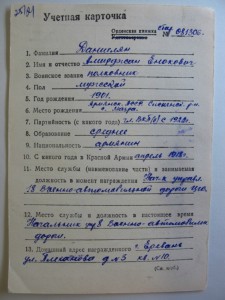 Учетная карточка
Орденская книжка
№ 081306.
1. Фамилия Даниелян
2. Имя и отчество Амирджан Енокович
3. Воинское звание полковник
4. Пол мужской
5. Год рождения 1901.
7. Партийность (с какого года) чл. ВКП(б) с 1920г.
8. Образование среднее
9. Национальность армянин
10. С какого года в Красной Армии апрель 1918г.
11. Место службы (наименование части) и занимаемая
должность в момент награждения Нач-к управл.
18 Военно-автомобильной дороги
12. Место службы и должность в настоящее время
Начальник упр 18 Военно-автомобильн.
дороги.
13. Домашний адрес награжденного г. Ереван
ул. д. № 5 кв. № 10.